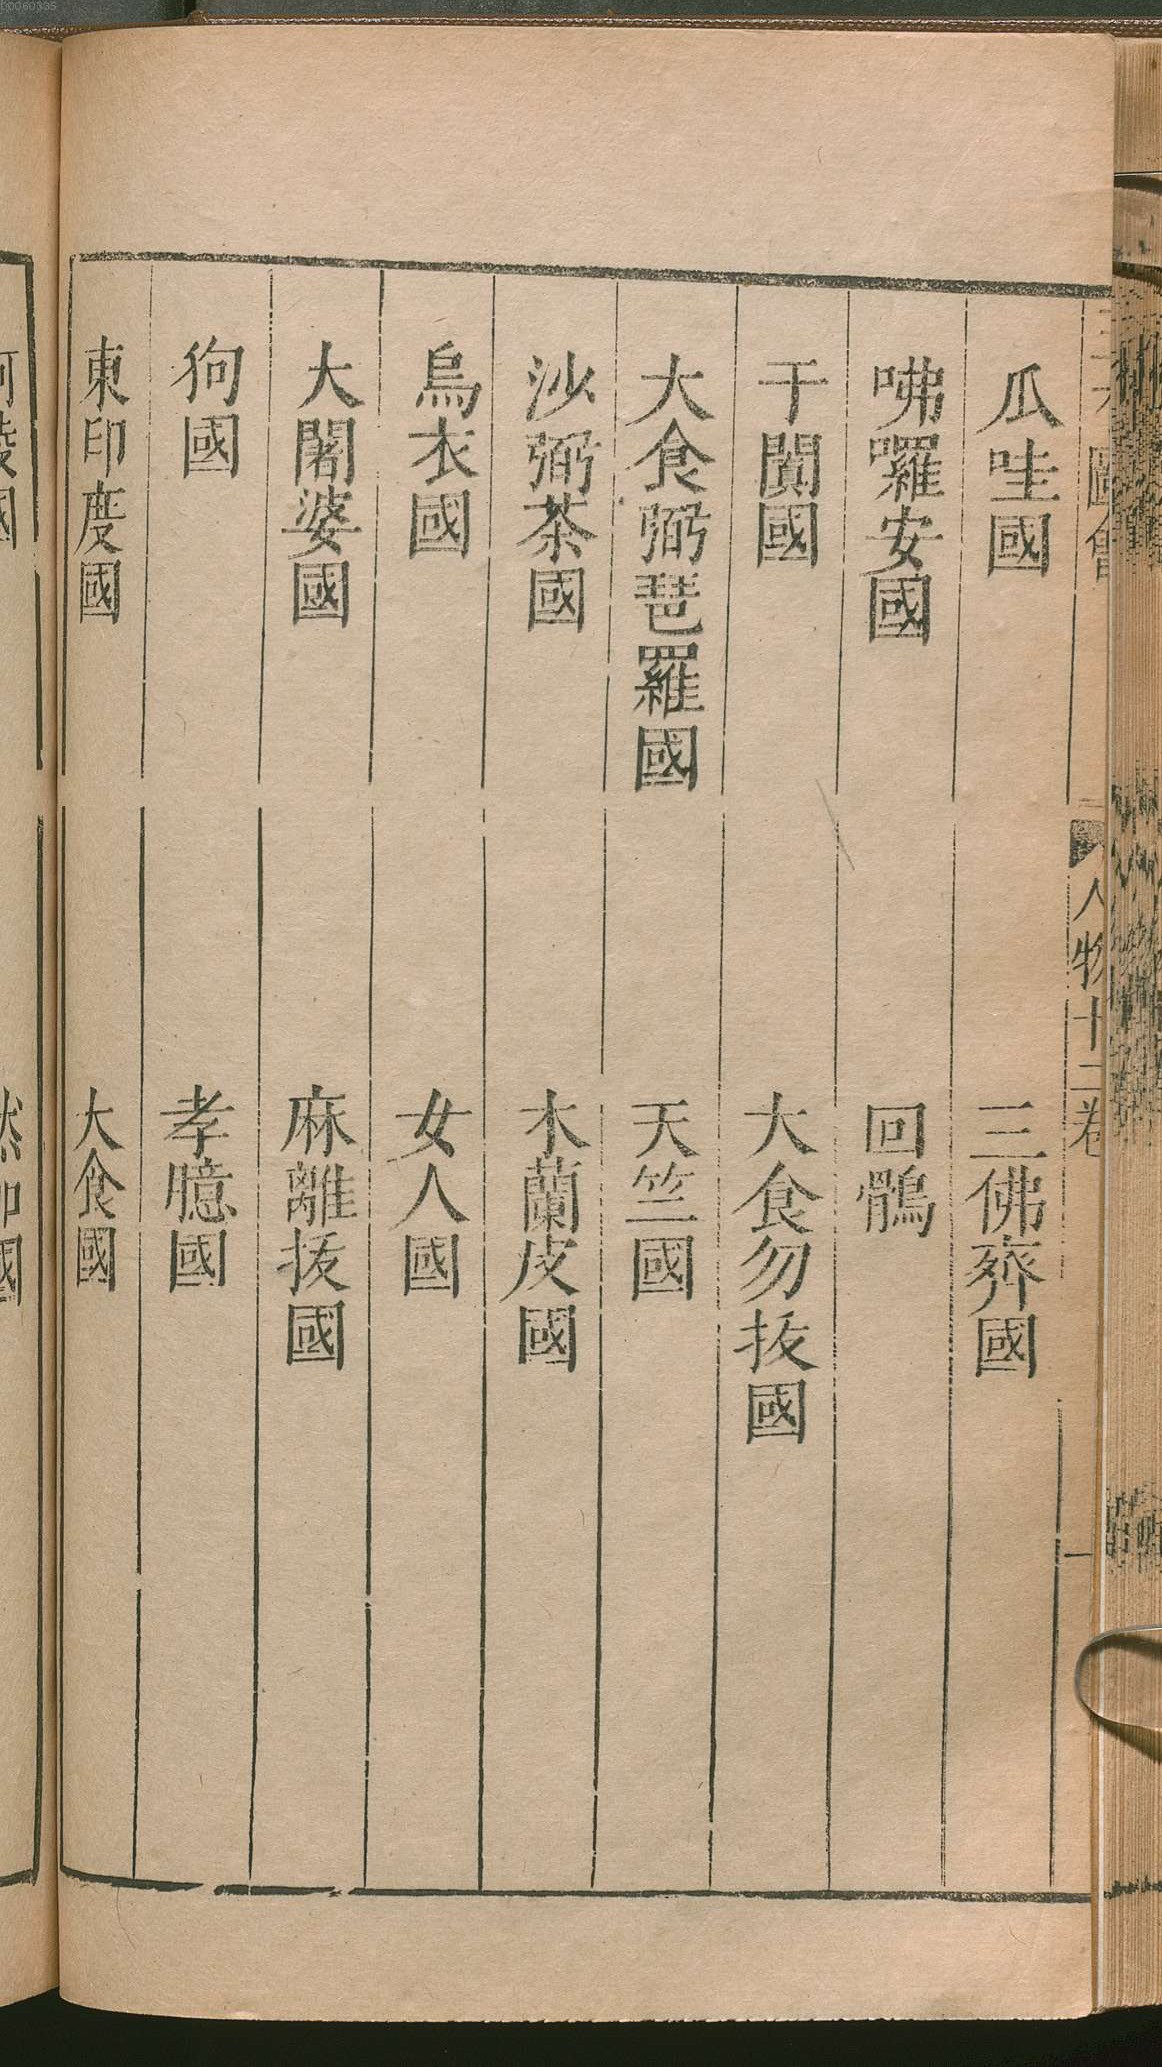 人物十二卷
瓜哇國 三佛齊國
咈囉安國 回鶻
于闐國 大食勿拔國
大食弼琶羅國 天竺國
沙弼茶國 木蘭皮國
烏衣國 女人國
大闍婆國 麻離拔國
狗國 孝臆國
東印度國 大食國